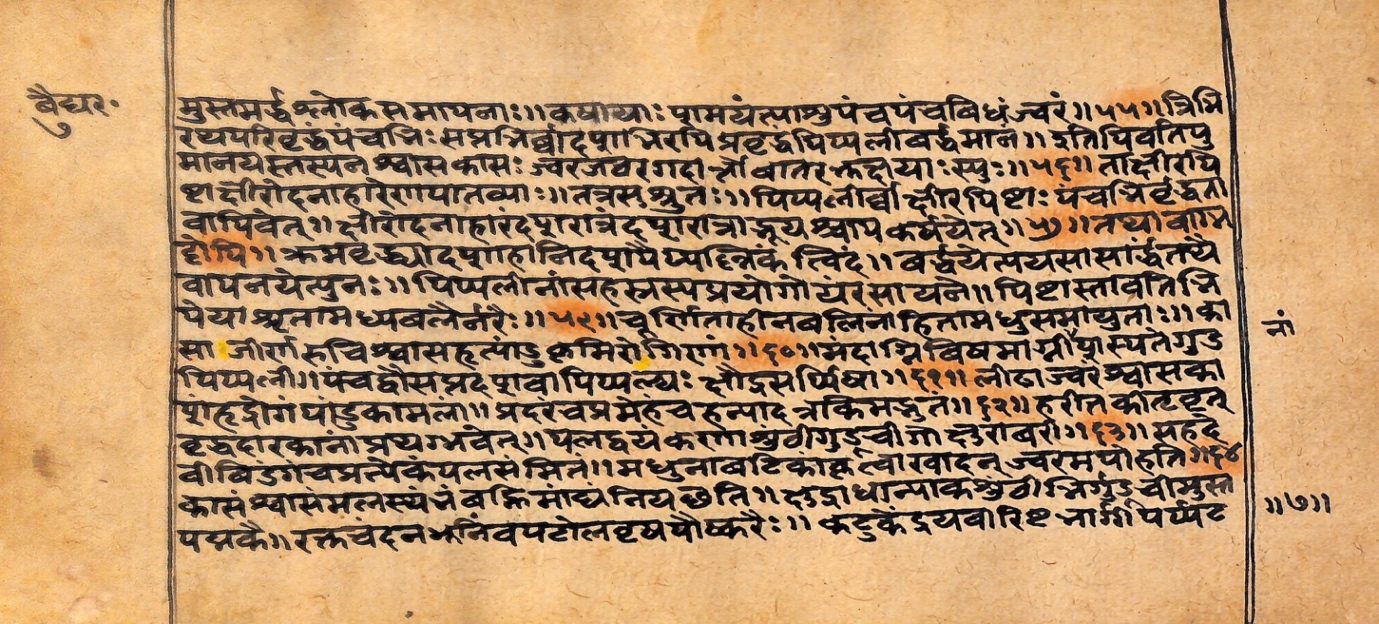 बैद्यर॰
७
मुस्तमर्द्धश्लोकसमापनाः॥ कषायाः पामयंत्याशुपंचपंचविधंज्वरं॥५५॥ त्रिभि
रथपरिवृद्धंपंचभिः सप्तभिर्वादशभिरपि प्रवृद्धंपिप्पलीवर्द्धमानं॥ इतिपिवतिपु
मानयस्तस्यन श्वासकासः ज्वरजवरगदार्शोवातरक्तक्षयाः स्युः॥५६॥ ताक्षीरपि
ष्टाक्षीरोदनाहारेणपातव्याः॥ तत्रसश्रुतः॥ पिप्पलीर्वाक्षीरपिष्टाः पंचभिर्वृद्धता
वापिवेत्॥ क्षीरोदनाहारंदशरात्रंदशरात्राद्भूयश्चापकर्षयेत्॥५७॥ तथावाग्भ
टोपि॥ क्रमवृद्ध्यादशाहानिदशपैप्पल्लिकं त्विद॥ वर्द्धयेत्पयसासार्द्धंतथै
वापनयेत्पुनः॥ पिप्पलीनांसहस्रस्यप्रयोगोयंरसायनं॥ पिष्टास्तावतिभि
पेयाश्रृतामध्यवलैर्नरैः॥५९॥ चूर्णिताहीनबलिनाहितामधुसमायुताः॥ का
साजीर्णरुचिश्वासहृत्पांडुकृमिरोगिणां॥६०॥ मंदाग्निविषमाग्नौशस्यतेगुड
पिप्पली॥ पंचद्वौसप्तदशवापिप्पल्यः क्षौद्रसर्पिषा॥६१॥ लीढाज्वरंश्वासका
शंहृद्रोगंपांडुकामलां॥ प्रदरंचप्रमेहंच हन्यादत्रकिमद्भुतं॥६२॥ हरीतकीतृवृत्
वृद्धदारकानांप्रथग्भवेत्॥ पलद्वयंकणाशुंठीगुडूचीगोक्षुरोवरी॥६३॥ सहदे
वीविडंगंचप्रत्येकंपलसंमितं॥ मधुनावटिकांकृत्वाखादन् ज्वरमपोहति॥६४
कासंश्वासंमलस्यभंवह्निमांद्यंनियछति॥ क्षुद्राधान्याकशुंठीभिर्गुडूचीमुस्त
पद्मकैः॥ रक्तचंदनभूनिंवपटोलवृषपौष्करैः॥ कटुकेंद्रयवारिष्टभार्गीपर्प्पट
नां
॥७॥